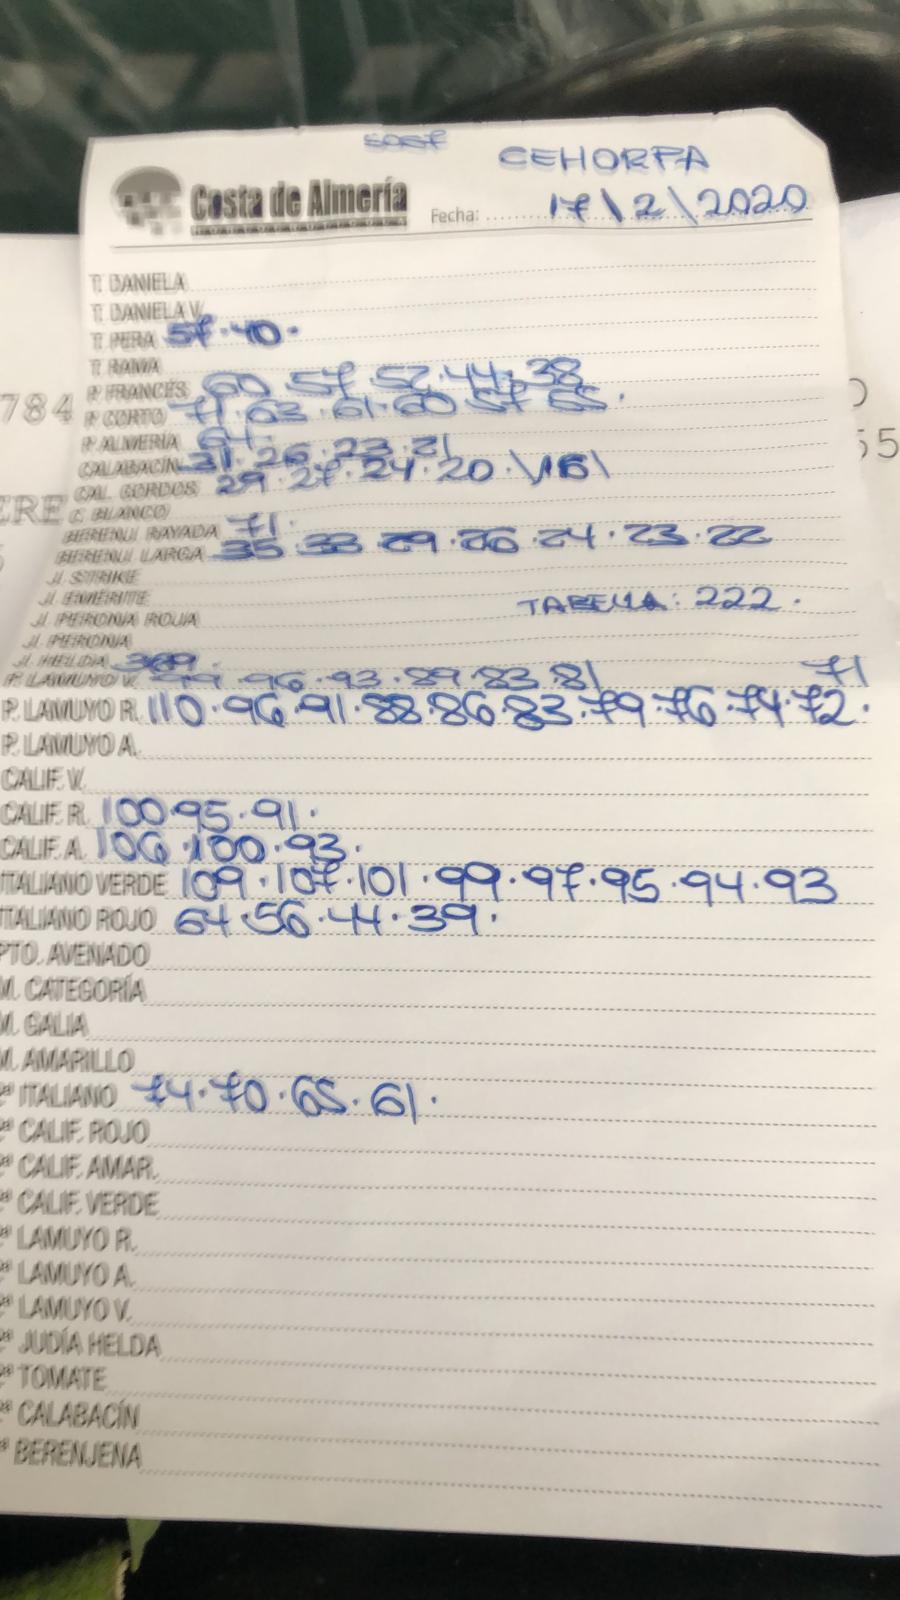 CEHORPA
Costa de Almería Fecha: 17\2\2020
T. DANIELA
T. DANIELA V.
T. PERA 57·40·
T. RAMA
P. FRANCÉS 60 57·52·44·38
P. CORTO 71·63·61·60 57 65·
P. ALMERÍA 64·
CALABACÍN 31·26·23·21
CAL. GORDOS 29·27·24·20·\16\
C. BLANCO
BERENJ. RAYADA 71·
BERENJ. LARGA 35 33 29·26·24·23·22
J. STRIKE
J. EMERITE TABELLA: 222·
J. PERONA ROJA
J. PERONA
J. HELDA 369·
P. LAMUYO V. 99·96·93·89·83·81 71
P. LAMUYO R. 110·96·91·88·86·83·79·76·74·72·
P. LAMUYO A.
CALIF. V.
CALIF. R. 100·95·91·
CALIF. A. 106·100·93·
ITALIANO VERDE 109·107·101·99·97·95·94·93
ITALIANO ROJO 64·56·44·39·
PTO. AVENADO
M. CATEGORÍA
M. GALIA
M. AMARILLO
ª ITALIANO 74·70·65·61·
ª CALIF. ROJO
ª CALIF. AMAR.
ª CALIF. VERDE
ª LAMUYO R.
ª LAMUYO A.
ª LAMUYO V.
ª JUDÍA HELDA
ª TOMATE
ª CALABACÍN
ª BERENJENA
784
ERE
55